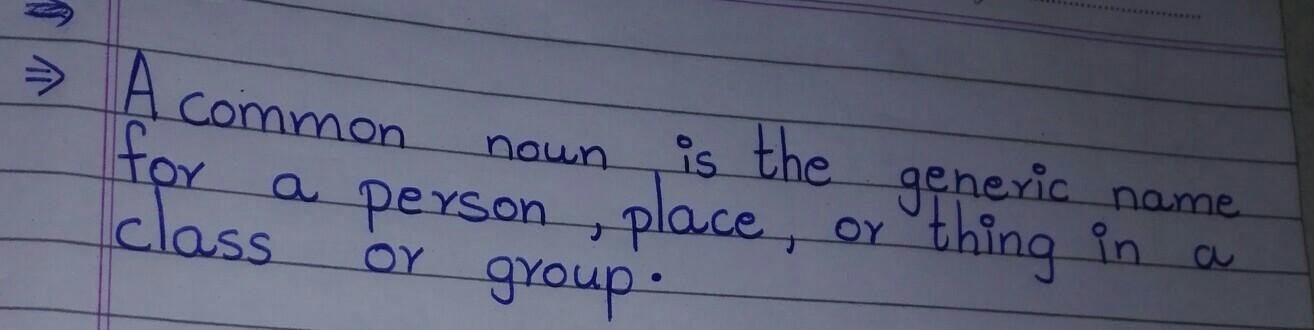 ⇒ A common noun is the generic name
for a person, place, or thing in a
class or group.